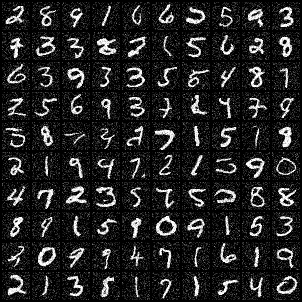 2 8 9 1 6 6 5 5 9 3
9 3 3 8 2 1 5 6 2 8
6 3 9 3 3 5 5 4 8 7
2 5 6 9 3 7 2 4 7 9
3 8 7 3 2 7 1 5 1 8
2 1 9 9 7 2 1 5 9 0
4 7 2 3 5 7 5 0 8 8
8 9 1 5 9 0 9 1 5 3
3 0 9 9 4 7 1 6 1 9
2 1 3 8 1 7 1 5 4 0